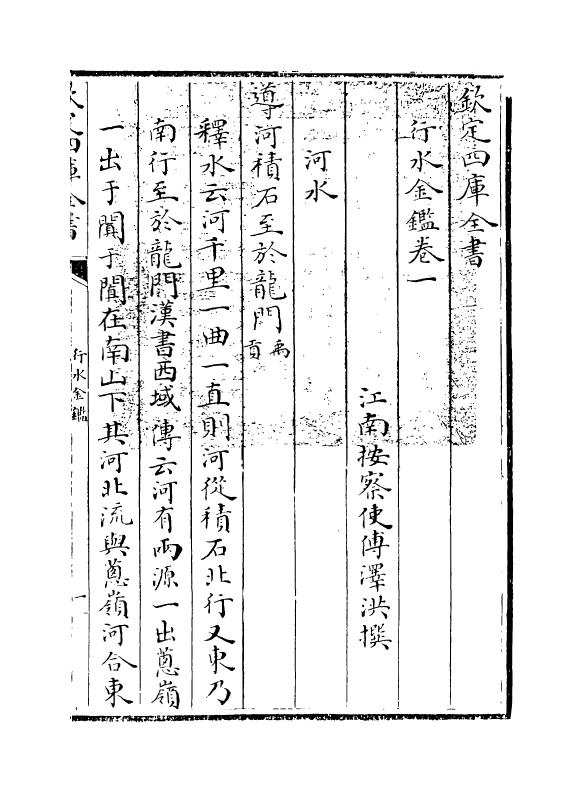 欽定四庫全書
行水金鑑卷一
江南按察使傅澤洪撰
河水
導河積石至於龍門禹貢
釋水云河千里一曲一直則河從積石北行又東乃
南行至於龍門漢書西域傳云河有兩源一出蔥嶺
一出于闐于闐在南山下其河北流與蔥嶺河合東
欽定四庫全書
行水金鑑
一